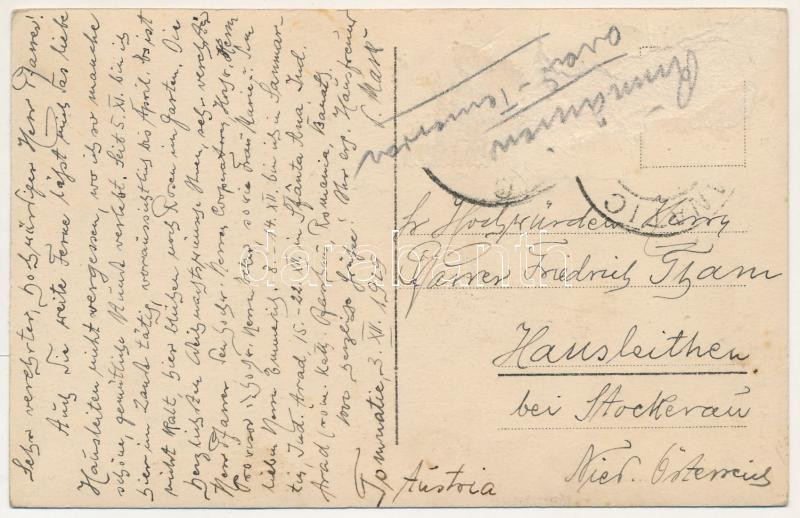 Sehr verehrter, hochwürdiger Herr Pfarrer!
Auch die weite Ferne läßt mich das liebe
Hausleiten nicht vergessen, wo ich so manche
schöne, gemütliche Stunde verlebt. Seit 5. XI. bin ich
hier im Lande tätig, voraussichtlich bis April. Es ist
nicht kalt, hier blühen noch Rosen im Garten. Die
herzlichsten Weihnachtswünsche Ihnen, sehr verehrter
Herr Pfarrer, Herrn Cooperator, Hochw. Herrn
Provisor, Herrn sowie Frau Marie. Im
lieben 8.-14. XII. bin ich in Sanmar-
tin Jud. Arad, 15.-22. XII. in Sfânta Ana Jud.
Arad (röm. kath. Pfarramt) Romania, Banat.
1000 herzliche Grüße! Ihr erg. Hausfreund
P. Mark
Tomnatic, 3. XII. 1929
Rumänien
Arad - Temesvar
Sr Hochwürden Herrn
Pfarrer Friedrich Tham
Hausleithen
bei Stockerau
Nied. Österreich
Austria
darabanth